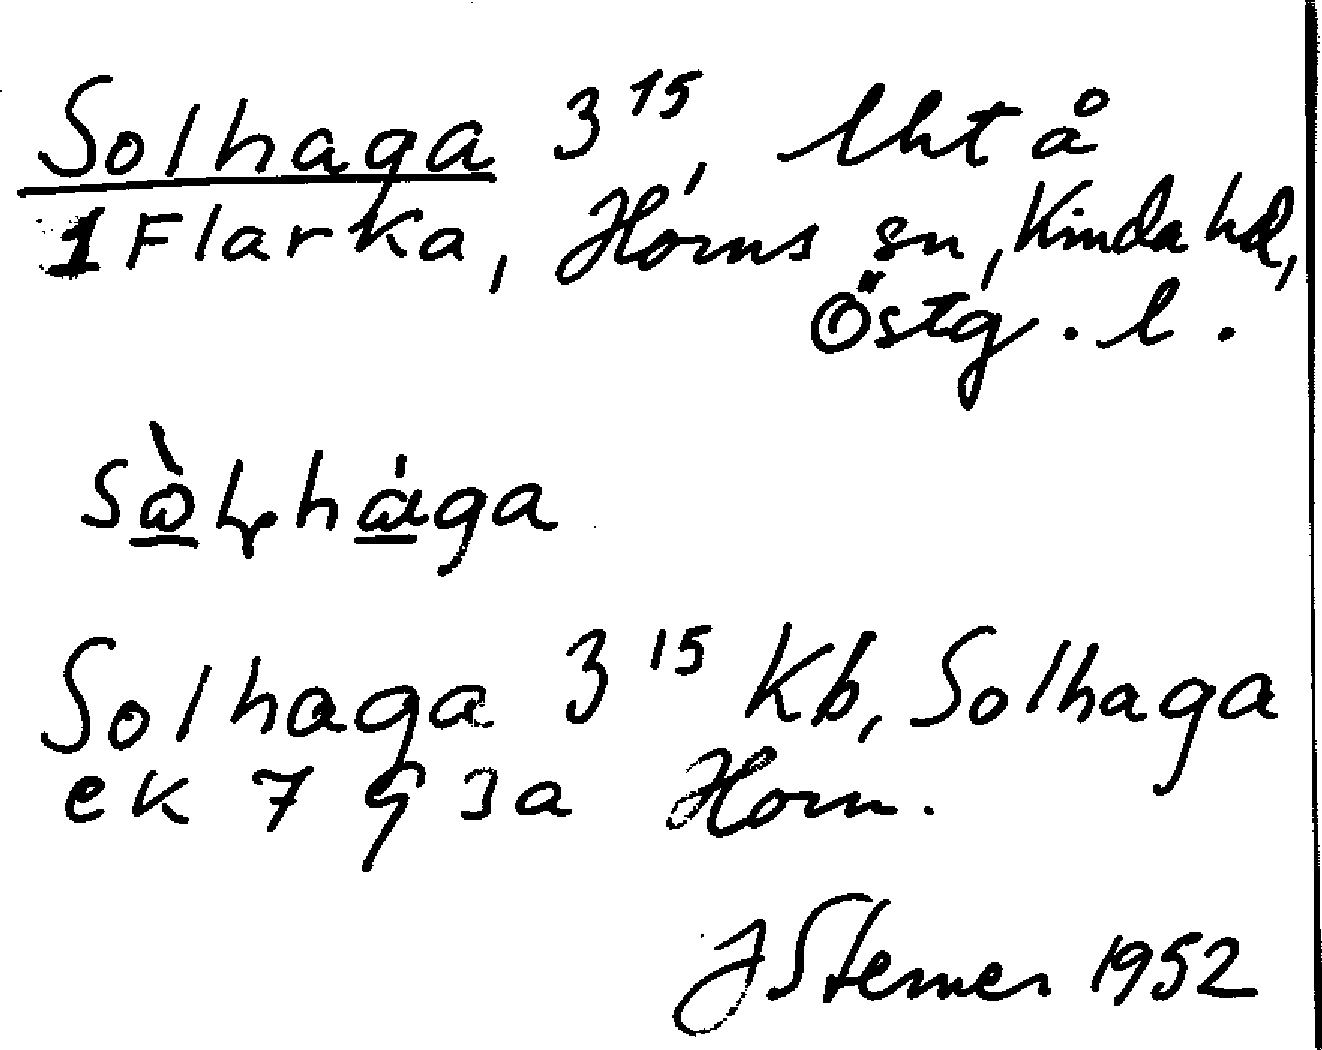 Solhaga 3¹⁵, lht å
1 Flarka, Horns sn, Kinda hd,
Östg. l.
Solhaga 3¹⁵ Kb, Solhaga
ek 7 g 3a Horn.
J Sterner 1952